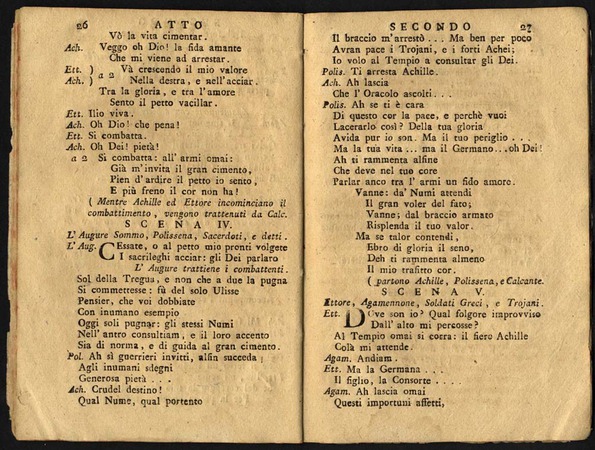 26 ATTO
Vò la vita cimentar.
Ach. Veggo oh Dio! la fida amante
Che mi viene ad arrestar.
Ett. ) a 2 Và crescendo il mio valore
Ach. ) Nella destra, e nell'acciar.
Tra la gloria, e tra l'amore
Sento il petto vacillar.
Ett. Ilio viva.
Ach. Oh Dio! che pena!
Ett. Si combatta.
Ach. Oh Dei! pietà!
a 2 Si combatta: all' armi omai:
Già m'invita il gran cimento,
Pien d'ardire il petto io sento,
E più freno il cor non ha!
( Mentre Achille ed Ettore incominciano il
combattimento, vengono trattenuti da Calc.
SCENA IV.
L' Augure Sommo, Polissena, Sacerdoti, e detti.
L' Aug. CEssate, o al petto mio pronti volgete
I sacrileghi acciar: gli Dei parlaro
L' Augure trattiene i combattenti.
Sol della Tregua, e non che a due la pugna
Si commettesse: fù del solo Ulisse
Pensier, che voi dobbiate
Con inumano esempio
Oggi soli pugnar: gli stessi Numi
Nell' antro consultiam, e il loro accento
Sia di norma, e di guida al gran cimento.
Pol. Ah sì guerrieri invitti, alfin succeda
Agli inumani sdegni
Generosa pietà . . .
Ach. Crudel destino!
Qual Nume, qual portento
SECONDO 27
Il braccio m'arrestò . . . Ma ben per poco
Avran pace i Trojani, e i forti Achei;
Io volo al Tempio a consultar gli Dei.
Polis. Ti arresta Achille.
Ach. Ah lascia
Che l' Oracolo ascolti . . .
Polis. Ah se ti è cara
Di questo cor la pace, e perchè vuoi
Lacerarlo così? Della tua gloria
Avida pur io son. Ma il tuo periglio . . .
Ma la tua vita ... ma il Germano...oh Dei!
Ah ti rammenta alfine
Che deve nel tuo core
Parlar anco tra l' armi un fido amore.
Vanne: da' Numi attendi
Il gran voler del fato;
Vanne; dal braccio armato
Risplenda il tuo valor.
Ma se talor contendi,
Ebro di gloria il seno,
Deh ti rammenta almeno
Il mio trafitto cor.
( partono Achille, Polissena, e Calcante.
SCENA V.
Ettore, Agamennone, Soldati Greci, e Trojani.
Ett. DOve son io? Qual folgore improvviso
Dall' alto mi percosse?
Al Tempio omai si corra: il fiero Achille
Colà mi attende.
Agam. Andiam.
Ett. Ma la Germana . . .
Il figlio, la Consorte . . . .
Agam. Ah lascia omai
Questi importuni affetti,